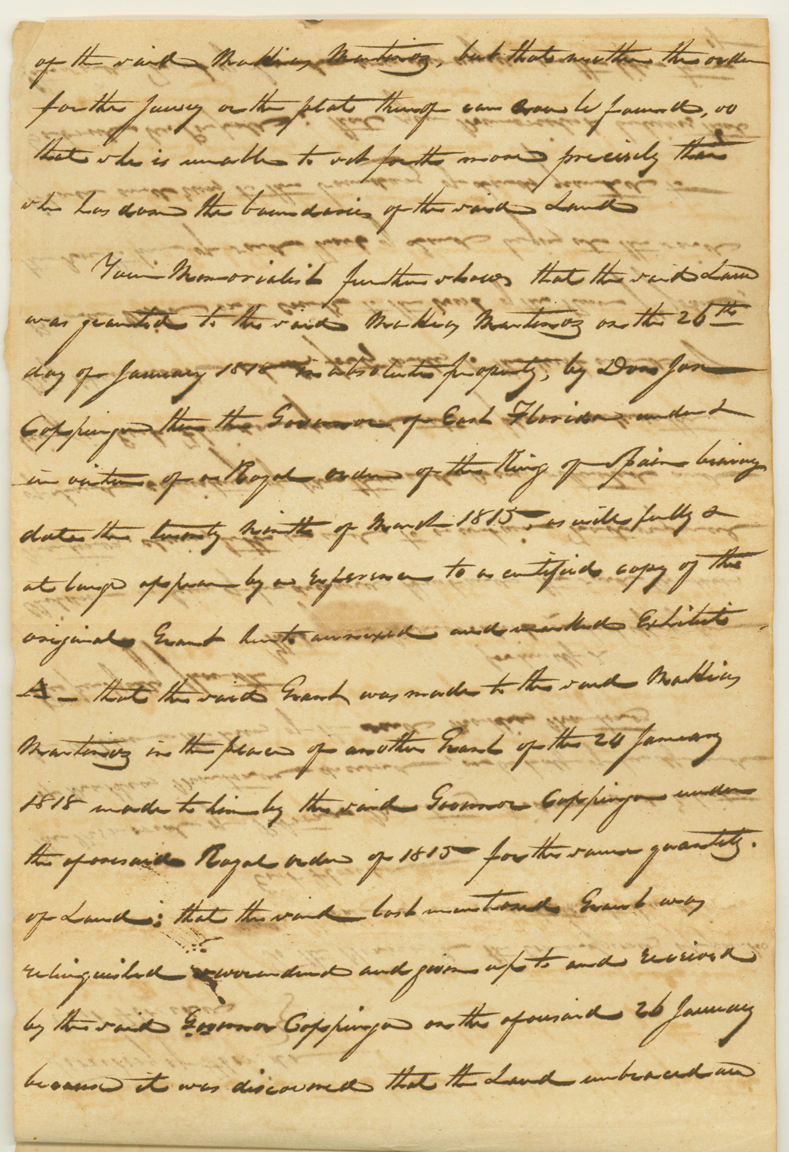 of the said Mathias Martinez, but that neither the order
for the survey or the plat thereof can now be found, so
that she is unable to set forth more precisely than
she has done the boundaries of the said Land
Your Memorialist further shows that the said Land
was granted to the said Mathias Martinez on the 26th
day of January 1818 in absolute property, by Don Jose
Coppinger then the Governor of East Florida under &
in virtue of a Royal order of the King of Spain bearing
date the twenty Ninth of March 1815 as will fully &
at large appear by a reference to a certified copy of the
original Grant hereto annexed and marked Exhibit
A — that the said Grant was made to the said Mathias
Martinez in the place of another Grant of the 24 January
1818 made to him by the said Governor Coppinger under
the aforesaid Royal order of 1815 for the same quantity
of Land; that the said last mentioned Grant was
relinquished surrendered and given up to and received
by the said Governor Coppinger on the aforesaid 26 January
because it was discovered that the Land embraced